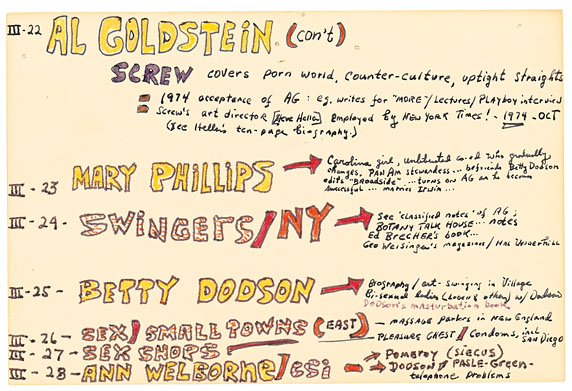 III-22 AL GOLDSTEIN (con't)
SCREW covers porn world, counter-culture, uptight straights
1974 acceptance of AG: eg. writes for "MORE"/Lectures/Playboy interview
Screw's art director [Steve Heller] employed by New York Times! - 1974 - OCT
(see Heller's ten-page biography.)
III-23 MARY PHILLIPS
Carolina girl, uninhibited co-ed who gradually
changes, Pan Am stewardess... befriends Betty Dodson
edits "Broadside"... turns on AG as he becomes
successful... marries Irwin...
III-24- SWINGERS/NY
See 'classified notes' of AG;
BOTANY TALK HOUSE... notes
Ed Brecher's book...
Geo Weisinger's magazine/
III-25- BETTY DODSON
Biography/art-swinging in Village
Bi-sexual ladies w/ Dodson
Dodson's masturbation book
III-26- SEX/SMALL TOWNS (EAST)
massage parlors in New England
III-27- SEX SHOPS
PLEASURE CHEST/condoms, incl San Diego
III-28- ANN WELBORNE/CSI
Pomeroy (SIECUS)
Dodson / -Green-
telephone problems